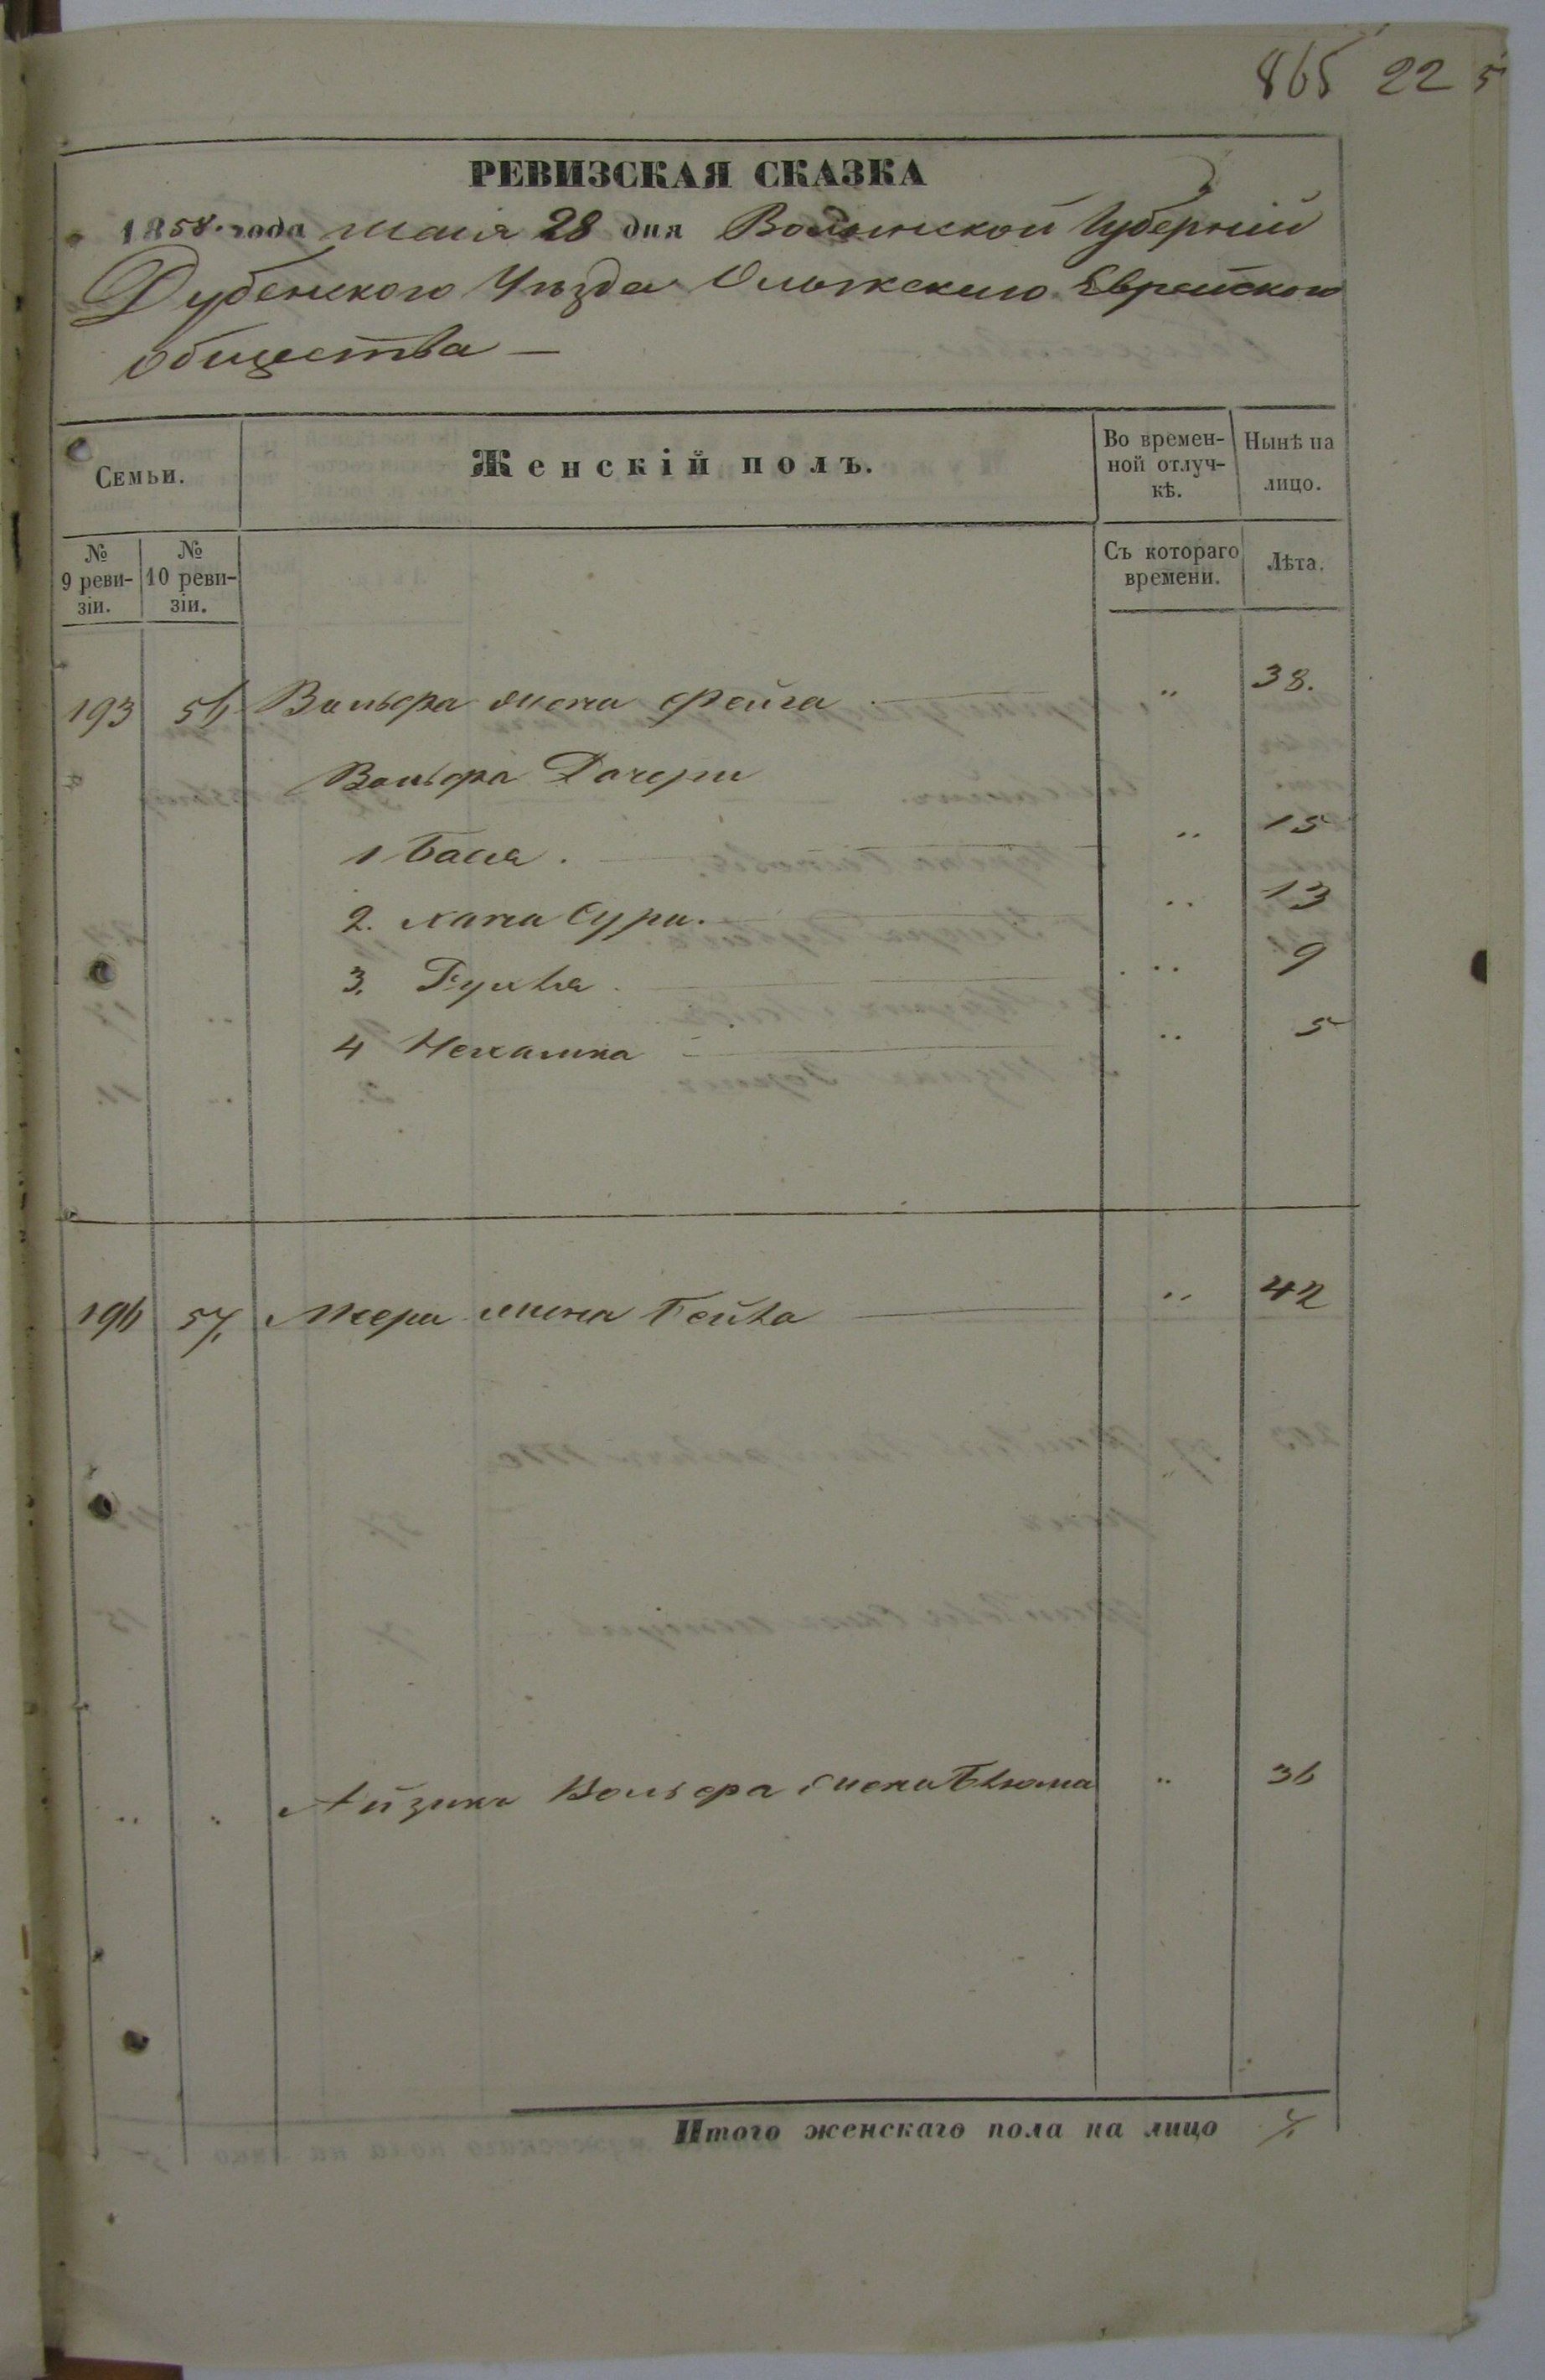 865 22 5
РЕВИЗСКАЯ СКАЗКА
1858. года маія 28 дня Волынской Губерніи
Дубенского Уѣзда Олыкского Еврейского
общества —
Семьи.
Женскій полъ.
Во времен-
ной отлуч-
кѣ.
Нынѣ на
лицо.
№
9 реви-
зіи.
№
10 реви-
зіи.
Съ котораго
времени.
Лѣта.
193 56 Вольфа жена Фейга — " 38.
Вольфа Дочери
1 Бася. — " 15
2. Хана Сура. — " 13
3. — " 9
4 Нехамка — " 5
196 57. жена Бейла — " 42
" " Айзика Вольфа жена Блюма " 36
Итого женскаго пола на лицо 7.